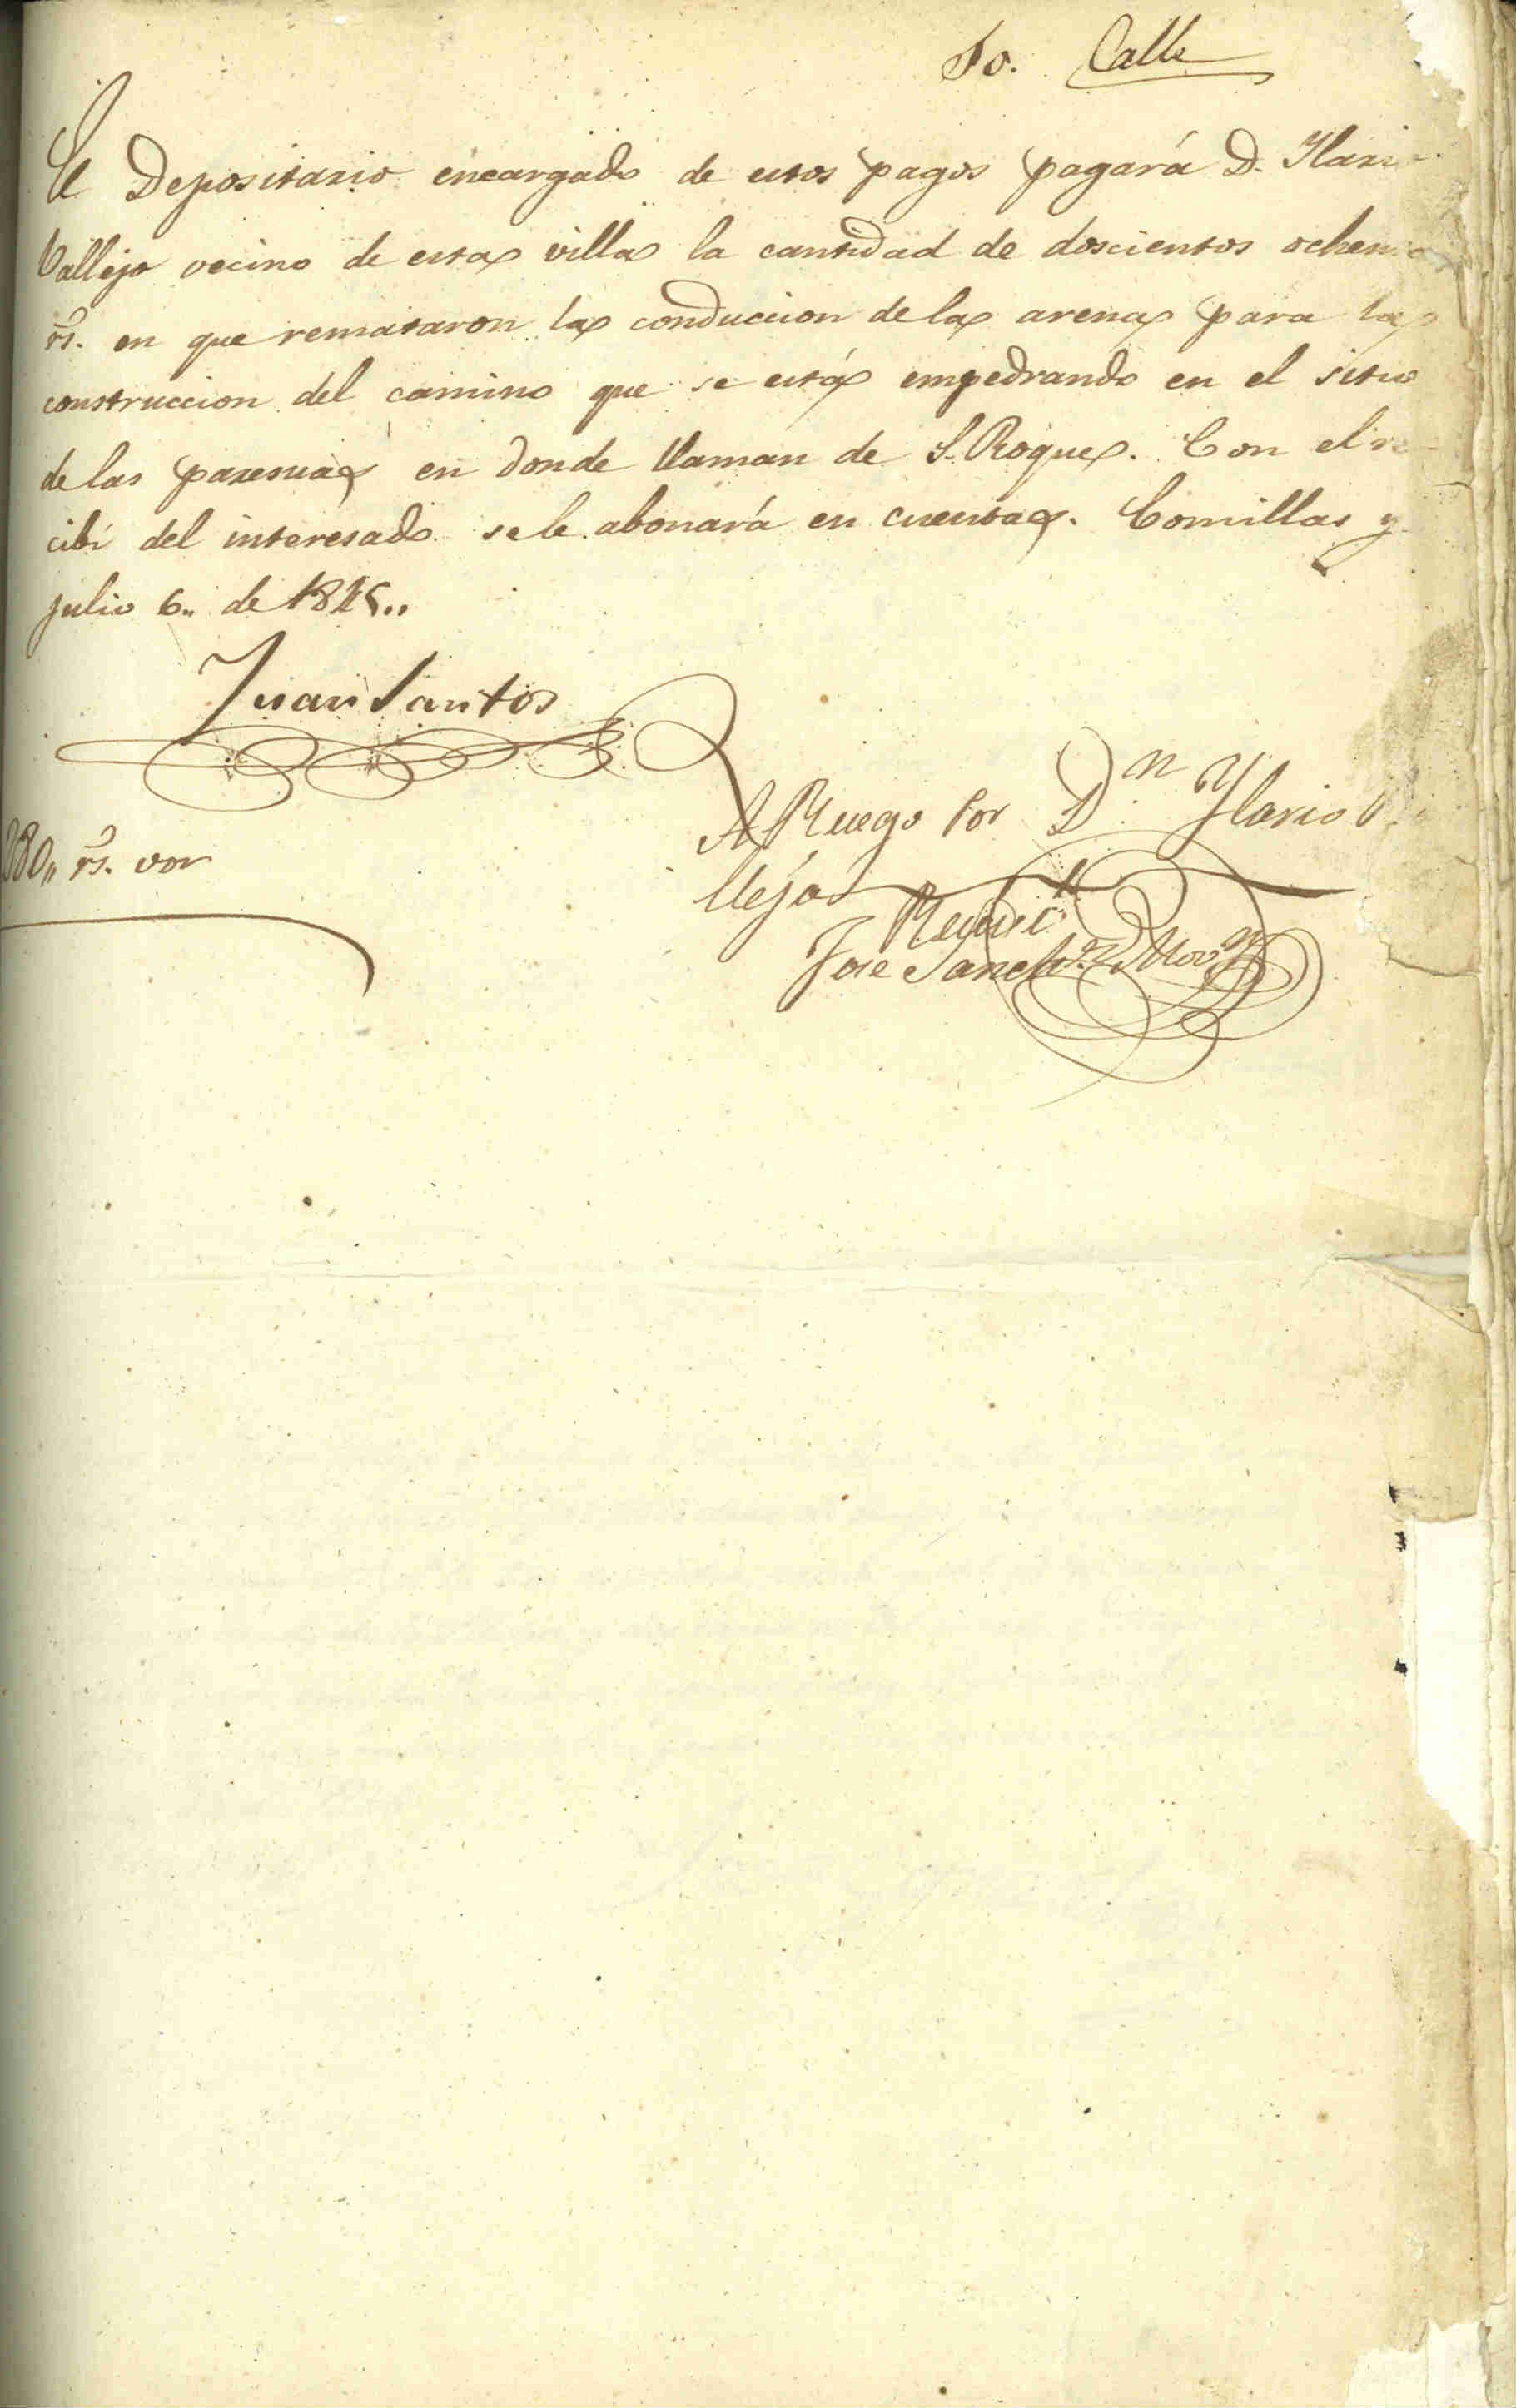 Fo. Calle
El Depositario encargado de estos pagos pagará D. Ylario
Vallejo vecino de esta villa la cantidad de doscientos ochenta
rs. en que remataron la conduccion de la arena para la
construccion del camino que se está empedrando en el sitio
de las en donde llaman de S. Roque. Con el re-
cibí del interesado se le abonará en cuenta. Comillas y
julio 6,, de
Juan Santos
A Ruego Por Dn. Ylario Va
llejo
280,, rs. von
Recivi
Jose Sanchz